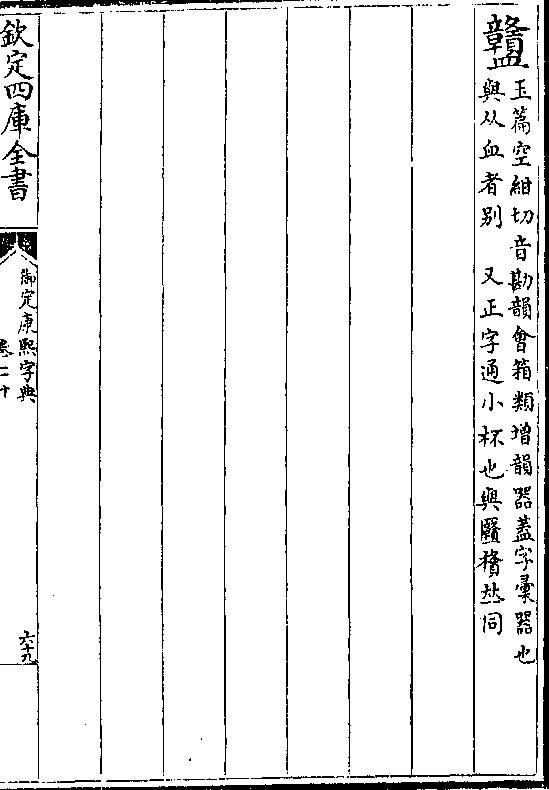 玉篇空紺切音勘韻會箱類增韻器蓋字彙器也
與从血者別　又正字通小杯也與𠀤同
欽定四庫全書
御定康熙字典
卷二十
六十九